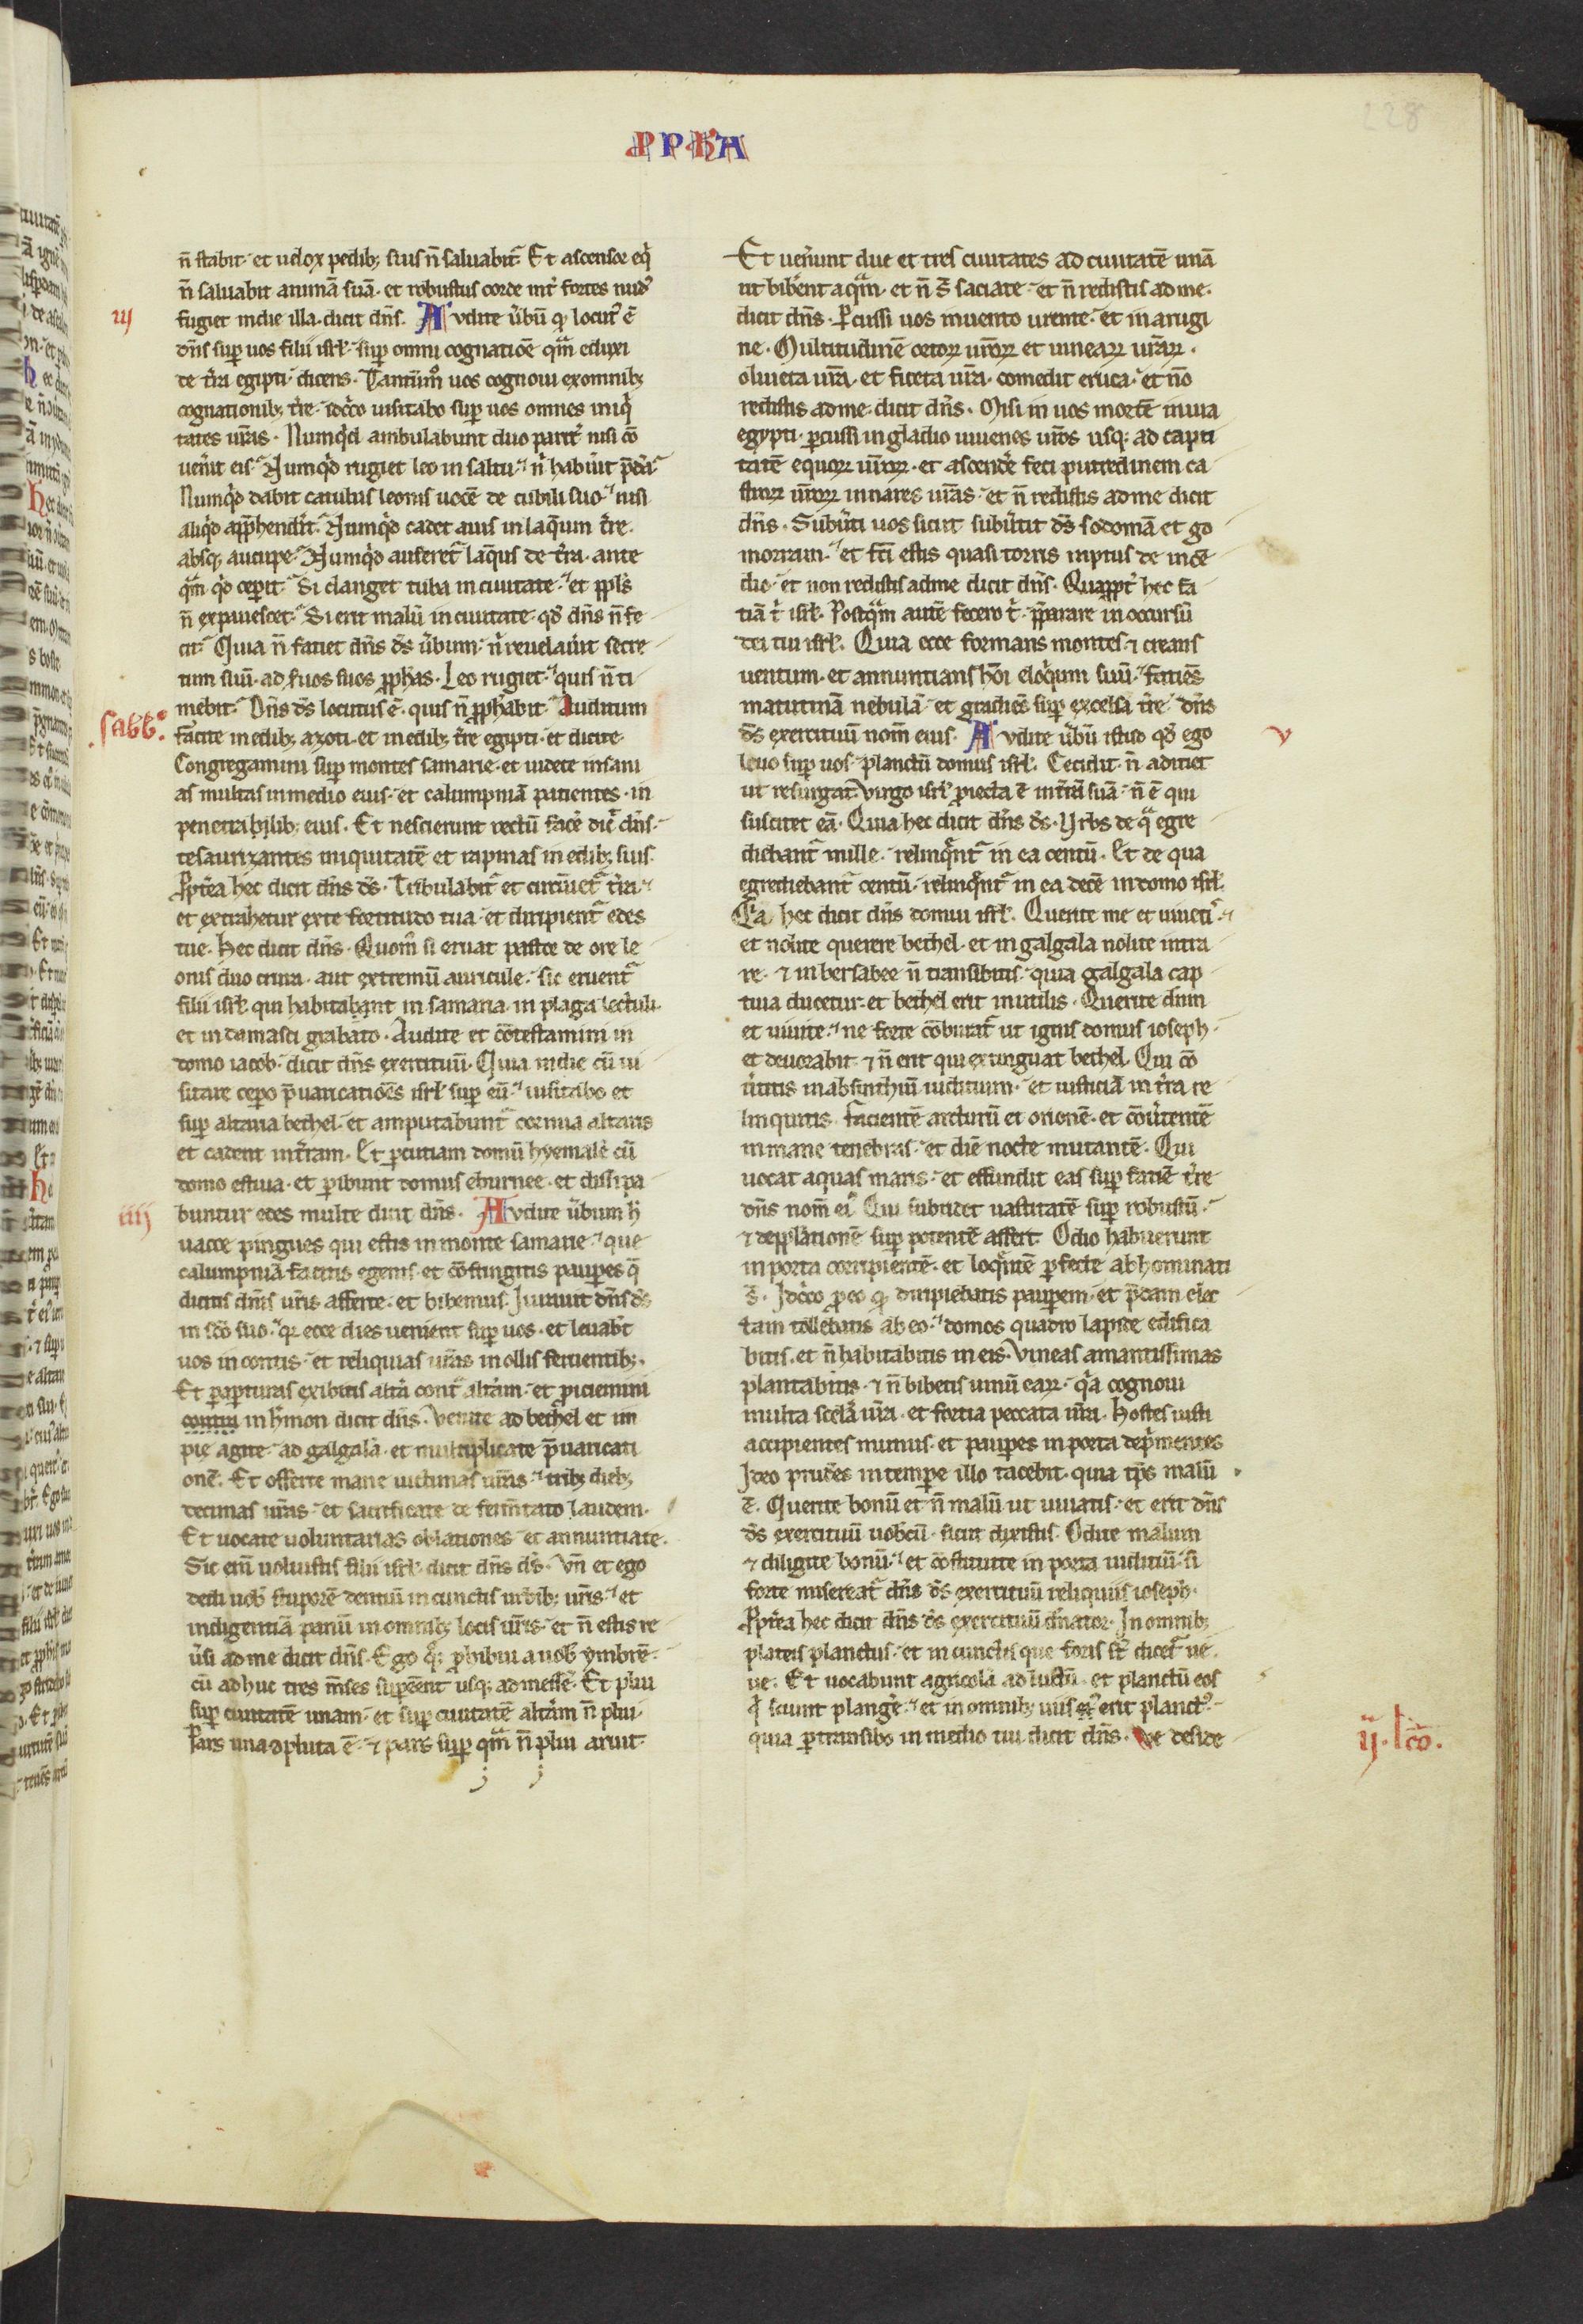 228
P P H A
n̄ stabit· et uelox pedib; suis n̄ saluabit᷑ Et ascensor eq͛
n̄ saluabit animā suā· et robustus corde int͛ fortes nud᷒
iij
fugiet in die illa· dicit dn̄s· Audite u͛bū qḋ locut᷒ ē
dn̄s sup̱ uos filii isrł· sup̱ omni cognatiōe qm̄ eduxi
de tr̄a egipti· dicens· Tantūm° uos cognoui ex omnib;
cognationib; tr̄e· idc͛co uisitabo sup̱ uos omnes iniq͛
tates ur̄as· Numqd́ ambulabunt duo parit͛ nisi cō
uen͛it eis· Numqd́ rugiet leo in saltu· n͛ habu͛it p̄dā·
Numqd́ dabit catulus leonis uocē de cubili suo· nisi
aliqd́ app̄hendit͛· Numqd́ cadet auis in laq̄um tr̄e·
absq; aucupe· Numqd́ auferet᷑ laq̄us de tr̄a· ante
qm̄ qd́ cep͛it· Si clanget tuba in ciuitate· et ppl̄s
n̄ expauescet· Si erit malū in ciuitate· qd́ dn̄s n̄ fe
cit· Quia n̄ faciet dn̄s ds̄ u͛bum· n͛ reuelau͛it secre
tum suū· ad s͛uos suos ꝓphas· Leo rugiet· quis n̄ ti
mebit· Dn̄s ds̄ locutus ē· quis n̄ ꝓphabit· Auditum
.sabb°.
facite in edib; azoti· et in edib; tr̄e egipti· et dicite·
Congregamini sup̱ montes samarie· et uidete insani
as multas in medio eius· et calumpniā patientes· in
penetrabilib; eius· Et nescierunt rectū face͛ dic͛ dn̄s·
tesaurizantes iniquitatē et rapinas in edib; suis·
Ꝓpt͛ea hec dicit dn̄s ds̄· Tribulabit᷑ et circūet᷑ tr̄a·
et extrahetur ex te fortitudo tua· et diripient᷑ edes
tue· Hec dicit dn̄s· Quom̊ si eruat pastor de ore le
onis duo crura· aut extremū auricule· sic eruent᷑
filii isrł qui habitabant in samaria in plaga lectuli·
et in damasci grabato· Audite et cōtestamini in
domo iacob· dicit dn̄s exercituū· Quia in die cū ui
sitare cepo p̄uaricatiōes isrł sup̱ eū· uisitabo et
sup̱ altaria bethel· et amputabunt᷑ cornua altaris
et cadent in tr̄am· Et p̱cutiam domū hyemalē cū
domo estiua· et p̱ibunt domus eburnee· et dissipa
iiij
buntur edes multe dicit dn̄s· Audite u͛bum h͛
uacce pingues qui estis in monte samarie· que
calumpniā facitis egenis· et cōfringitis paup̱es q̄
dicitis dn̄is ur̄is afferte· et bibemus· Iurauit dn̄s ds̄
in scō suo· qr̄ ecce dies uenient sup̱ uos· et leuab͛t
uos in contis· et reliquias ur̄as in ollis feruentib;·
Et p̱ ap̱turas exibitis alt͛a cont᷑ alt͛am· et ꝓiciemini
contra in h͛mon dicit dn̄s· Venite ad bethel et im
pie agite· ad galgalā· et multiplicate p̄uaricati
onē· Et offerte mane uictimas ur̄as· trib; dieb;
decimas ur̄as· et sacrificate de fermn̄tato laudem·
Et uocate uoluntarias oblationes et annuntiate·
Sic eni͛ uoluistis filii isrł dicit dn̄s ds̄· Vn̄ et ego
dedi uob̄ stuporē dentiū in cunctis urbib; ur̄is· et
indigentiā panū in omnib; locis ur̄is· et n̄ estis re
u͛si ad me dicit dn̄s· Ego q; ꝓhibui a uob̄ ymbrē·
cū adhuc tres m̄ses sup̱eēnt usq; ad messē· Et plui
sup̱ ciuitatē unam· et sup̱ ciuitatē alt͛am n̄ plui·
Pars una cōpluta ē· ⁊ pars sup̱ qm̄ n̄ plui aruit·
Et uen͛unt due et tres ciuitates ad ciuitatē unā
ut bib͛ent aqm̄· et n̄ s̄ saciate· et n̄ redistis ad me·
dicit dn̄s· P̱cussi uos in uento urente· et in arugi
ne· Multitudinē ortoꝝ ur̄oꝝ et uineaꝝ ur̄aꝝ·
oliueta ur̄a· et ficeta ur̄a· comedit eruca· et n̄o
redistis ad me dicit dn̄s· Misi in uos mortē in uia
egypti· p̱cussi in gladio iuuenes ur̄os usq; ad capti
tatē equoꝝ ur̄oꝝ· et ascende͛ feci putredinem ca
stroꝝ ur̄oꝝ in nares ur̄as· et n̄ redistis ad me dicit
dn̄s· Subu͛ti uos sicut subu͛tit ds̄ sodomā et go
morram· et fc̄i estis quasi torris raptus de incē
dio· et non redistis ad me dicit dn̄s· Quappt͛ hec fa
ciā t͛ isrł· Postqm̄ autē fecero t͛· p̄parare in occursū
dei tui isrł· Quia ecce formans montes ⁊ creans
uentum· et annuntians hōi eloq͛um suū· faciēs
matutinā nebulā· et gradiēs sup̱ excelsa tr̄e· dn̄s
v
ds̄ exercituū nom̄ eius· Audite u͛bū istud qd́ ego
leuo sup̱ uos· planctū domus isrł· Cecidit n̄ adiciet
ut resurgat· Virgo isrł ꝓiecta ē in tr̄ā suā· n̄ ē qui
suscitet eā· Quia hec dicit dn̄s ds̄· Vrbs de qᷓ egre
diebant᷑ mille· relinq͛nt᷑ in ea centū· Et de qua
egrediebant᷑ centū· relinq͛nt᷑ in ea decē in domo isrł·
Qᷓa hec dicit dn̄s domui isrł· Querite me et uiueti᷒·
et nolite querere bethel· et in galgala nolite intra
re· ⁊ in bersabee n̄ transibitis· quia galgala cap
tiua ducetur· et bethel erit inutilis· Querite dn̄m
et uiuite· ne forte cōburat᷑ ut ignis domus ioseph·
et deuorabit ⁊ n̄ erit qui extinguat bethel· Qui cō
u͛titis in absinthiū iudicium· et iusticiā in tr̄a re
linquitis· facientē arcturū et orionē· et cōu͛tentē
in mane tenebras· et diē nocte mutantē· Qui
uocat aquas maris· et effundit eas sup̱ faciē tr̄e·
dn̄s nom̄ ei᷒· Qui subridet uastitatē sup̱ robustū·
⁊ depplationē sup̱ potentē affert· Odio habuerunt
in porta corripientē· et loq͛ntē p̱fecte abhominati
s̄· Idc͛co ꝓ eo qḋ diripiebatis paup̱em· et p̄dam elec
tam tollebatis ab eo· domos quadro lapide edifica
bitis· et n̄ habitabitis in eis· Vineas amantissimas
plantabitis· ⁊ n̄ bibetis uinū eaꝝ· qᷓa cognoui
multa scelera ur̄a· et fortia peccata ur̄a· Hostes iusti
accipientes munus· et paup̱es in porta dep͛mentes
Ideo prudēs in tempore illo tacebit· quia tp̄s malū
ē· Querite bonū et n̄ malū ut uiuatis· et erit dn̄s
ds̄ exercituū uob̄cū· sicut dixistis· Odite malum
⁊ diligite bonū· et cōstituite in porta iudiciū· si
forte misereat᷑ dn̄s ds̄ exercituū reliquiis ioseph·
Ꝓpt͛ea hec dicit dn̄s ds̄ exercituū dn̄ator· In omnib;
plateis planctus· et in cunctis que foris st̄ dicet᷑ ue
ue· Et uocabunt agricolā ad luctū· et planctū eos
q͛ sciunt plange͛· et in omnib; uiis erit planct᷒·
ij. lc̄o.
quia p̱transibo in medio tui dicit dn̄s· Ve deside